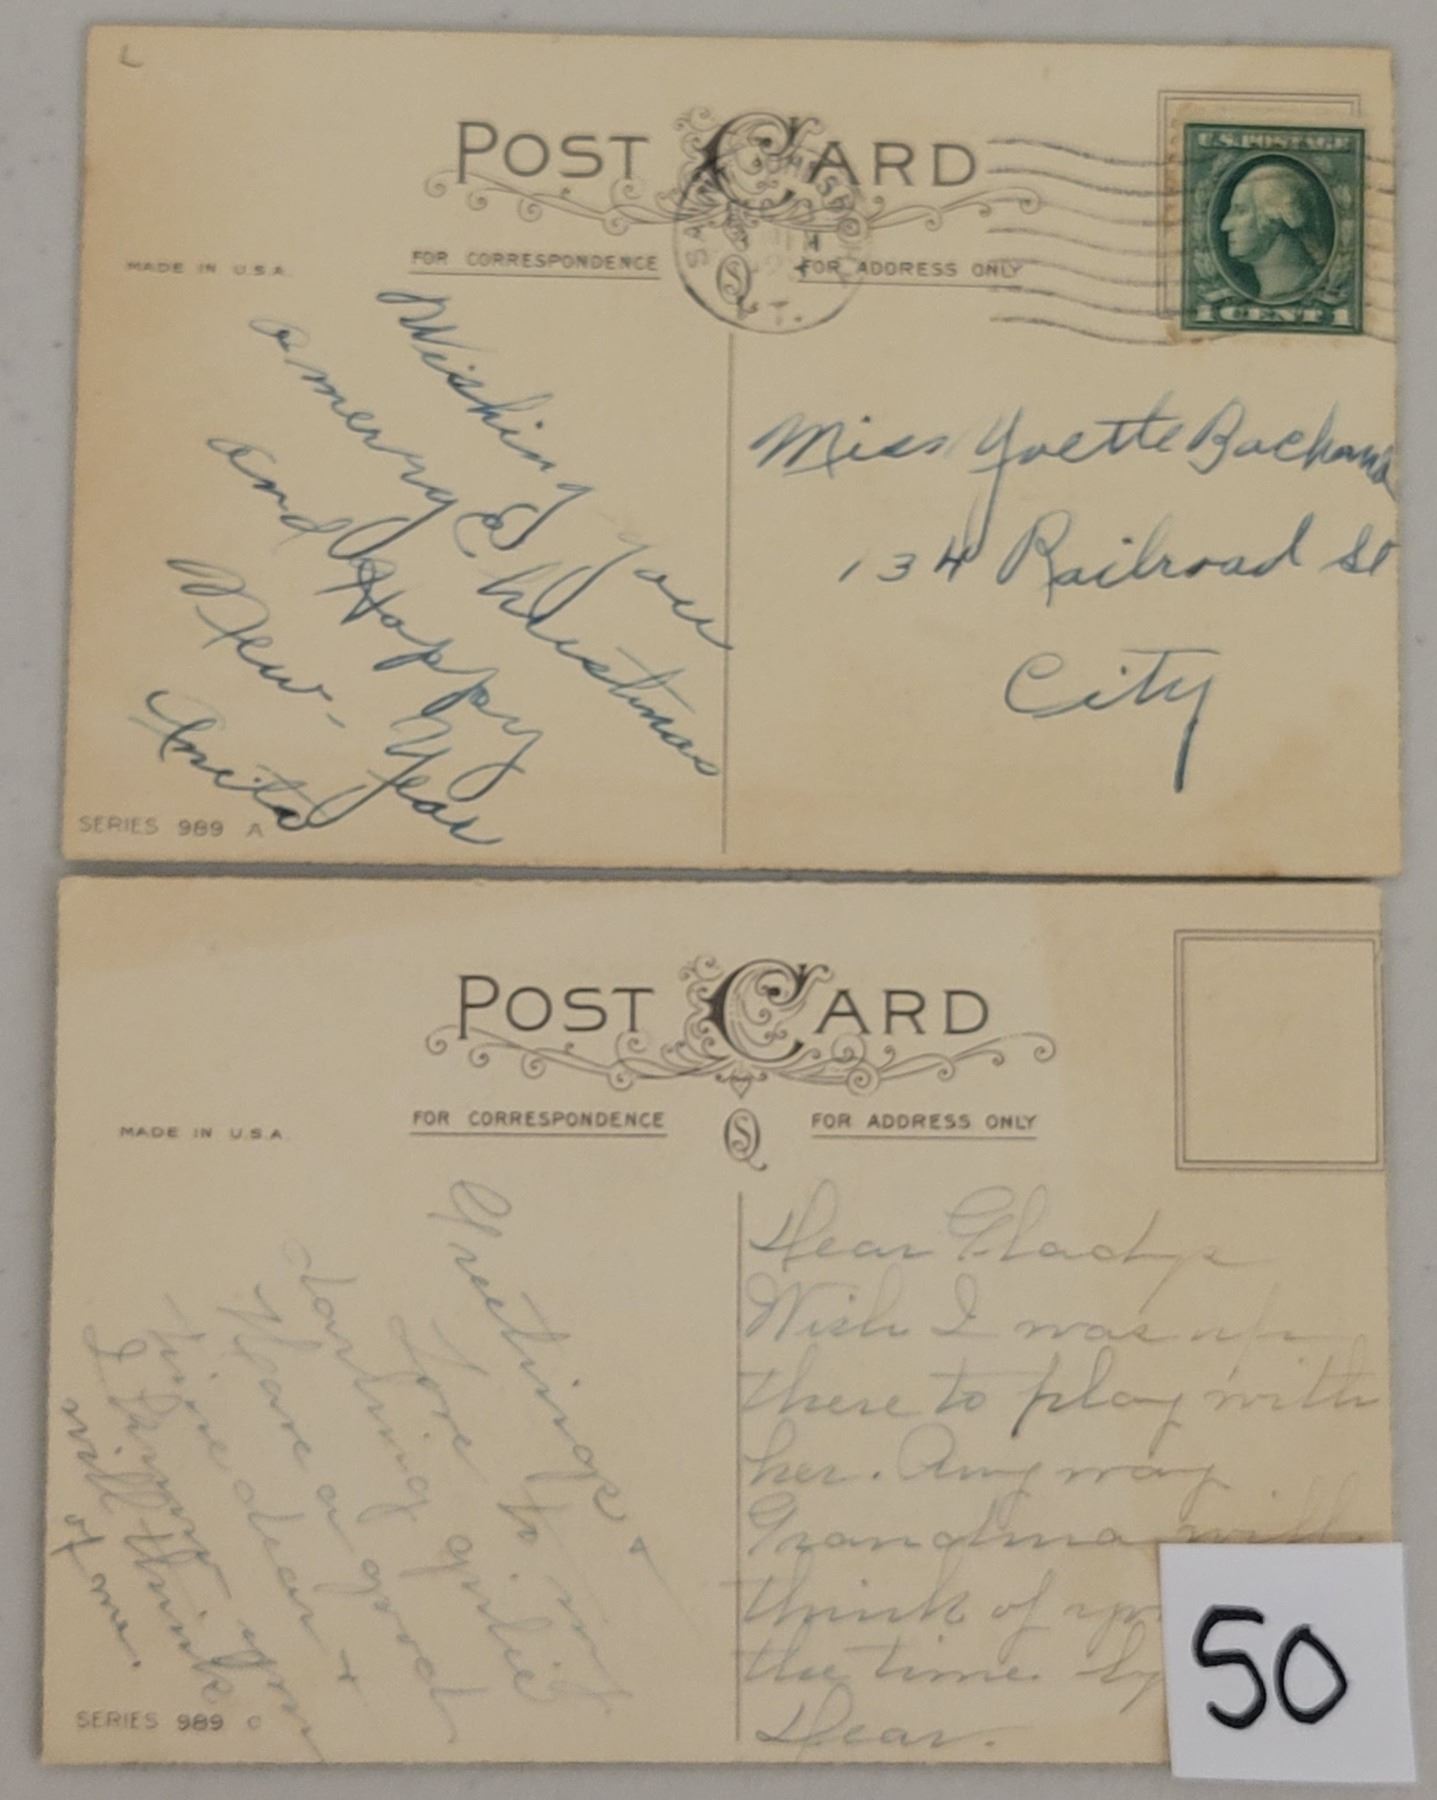 POST CARD
MADE IN U.S.A.
FOR CORRESPONDENCE
FOR ADDRESS ONLY
U.S. POSTAGE
1 CENT 1
Wishing you
a merry Christmas
and Happy
New-Year
Anita
Miss Yvette
134 Railroad St
City
SERIES 989 A
POST CARD
MADE IN U.S.A.
FOR CORRESPONDENCE
FOR ADDRESS ONLY
Greetings &
Love to my
darling
Have a good
time dear &
I know you
will think
of me.
Dear Gladys
Wish I was up
there to play with
her. Any way
Grandma will
think of
the time.
Dear.
SERIES 989 C
50